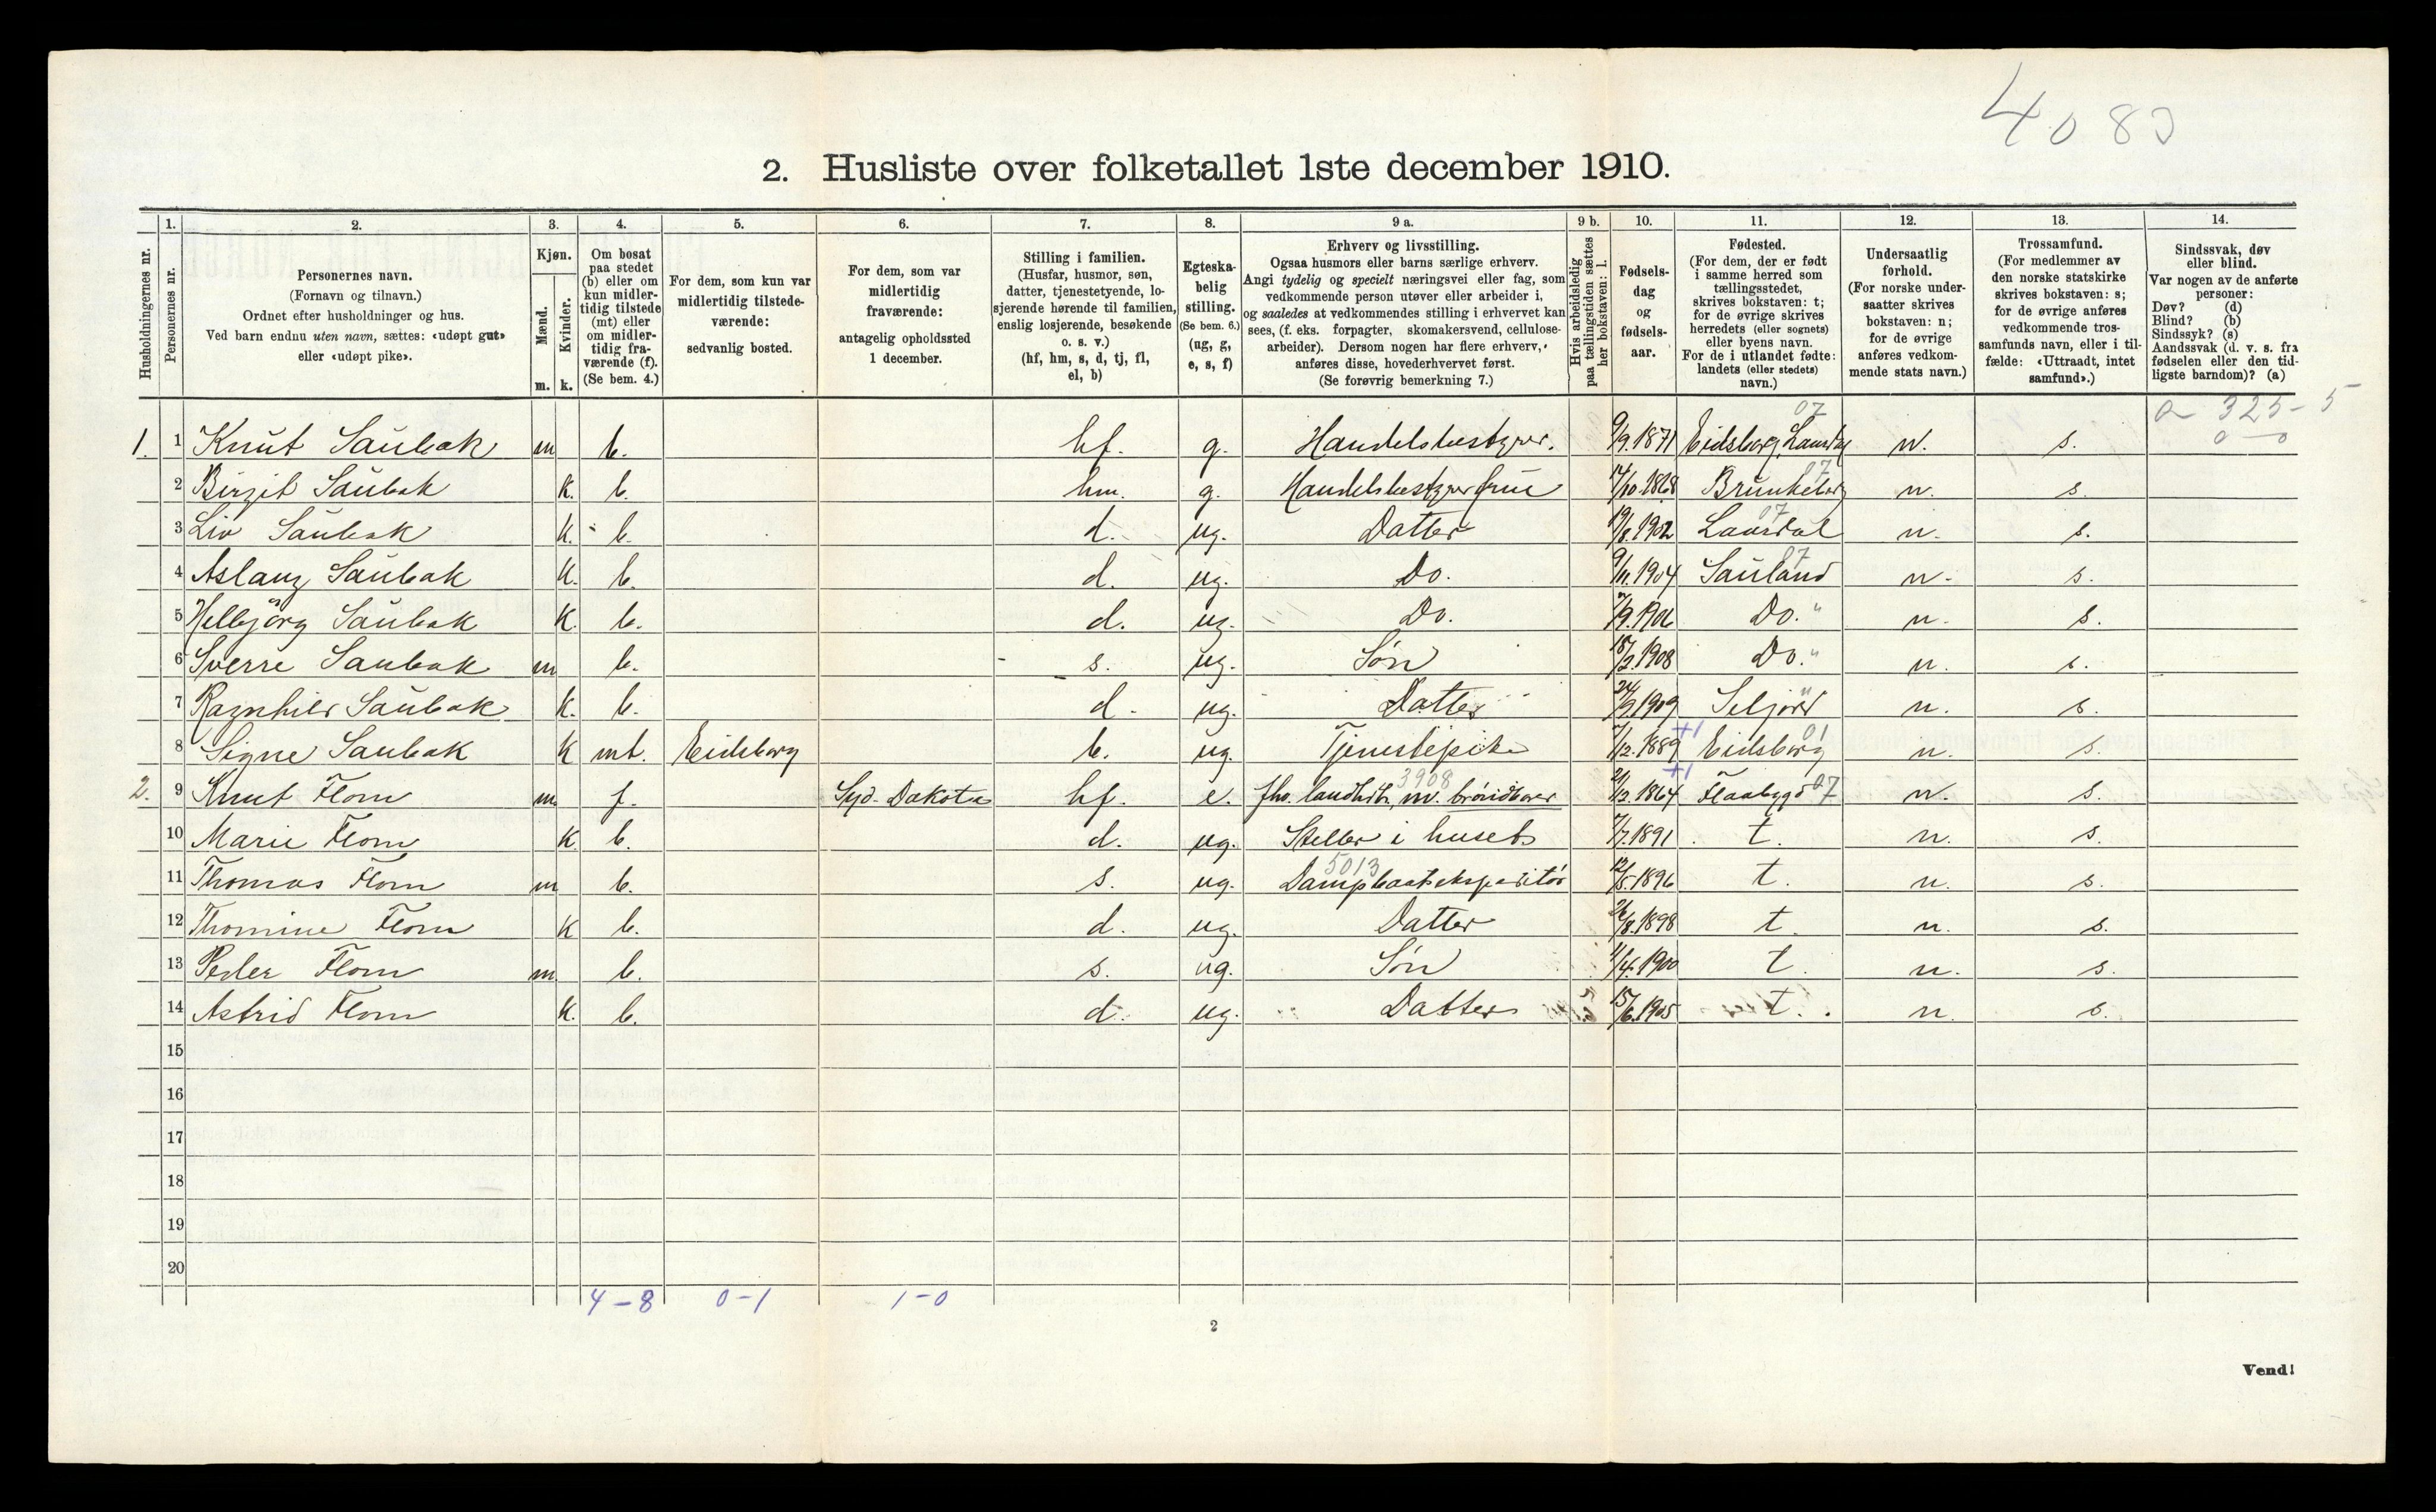 4083
2. Husliste over folketallet 1ste december 1910.
Husholdningernes nr.
1. Personernes nr.
2. Personernes navn. (Fornavn og tilnavn.) Ordnet efter husholdninger og hus. Ved barn endnu uten navn, sættes: «udøpt gut» eller «udøpt pike».
3. Kjøn. Mænd. m. Kvinder. k.
4. Om bosat paa stedet (b) eller om kun midlertidig tilstede (mt) eller om midlertidig fraværende (f). (Se bem. 4.)
5. For dem, som kun var midlertidig tilstedeværende: sedvanlig bosted.
6. For dem, som var midlertidig fraværende: antagelig opholdssted 1 december.
7. Stilling i familien. (Husfar, husmor, søn, datter, tjenestetyende, losjerende hørende til familien, enslig losjerende, besøkende o. s. v.) (hf, hm, s, d, tj, fl, el, b)
8. Egteskabelig stilling. (Se bem. 6.) (ug, g, e, s, f)
9 a. Erhverv og livsstilling. Ogsaa husmors eller barns særlige erhverv. Angi tydelig og specielt næringsvei eller fag, som vedkommende person utøver eller arbeider i, og saaledes at vedkommendes stilling i erhvervet kan sees, (f. eks. forpagter, skomakersvend, cellulosearbeider). Dersom nogen har flere erhverv, anføres disse, hovederhvervet først. (Se forøvrig bemerkning 7.)
9 b. Hvis arbeidsledig paa tællingstiden sættes her bokstaven: l.
10. Fødselsdag og fødselsaar.
11. Fødested. (For dem, der er født i samme herred som tællingsstedet, skrives bokstaven: t; for de øvrige skrives herredets (eller sognets) eller byens navn. For de i utlandet fødte: landets (eller stedets) navn.)
12. Undersaatlig forhold. (For norske undersaatter skrives bokstaven: n; for de øvrige anføres vedkommende stats navn.)
13. Trossamfund. (For medlemmer av den norske statskirke skrives bokstaven: s; for de øvrige anføres vedkommende trossamfunds navn, eller i tilfælde: «Uttraadt, intet samfund».)
14. Sindssvak, døv eller blind. Var nogen av de anførte personer: Døv? (d) Blind? (b) Sindssyk? (s) Aandssvak (d. v. s. fra fødselen eller den tidligste barndom)? (a)
a 325-5
0-0
1. 1 Knut Saubak m b. hf. g. Handelsbestyrer. 9/9.1871 Eidsborg, 07 n. s.
2 Birgit Saubak k. b. hm. g. Handelsbestyrerfrue 14/10.1868 Brunkeberg 07 n. s.
3 Liv Saubak k. b. d. ug. Datter 19/8.1902 Laurdal 07 n. s.
4 Aslaug Saubak k. b. d. ug. Do. 9/11.1904 Sauland 07 n. s.
5 Helbjørg Saubak k. b. d. ug. Do. 7/9.1906 Do. " n. s.
6 Sverre Saubak m b. s. ug. Søn 18/2.1908 Do. " n. s.
7 Ragnhild Saubak k. b. d. ug. Datter 24/9.1909 Seljord " n. s.
8 Signe Saubak k mt. Eidsborg b. ug. Tjenestepike 7/12.1889 +1 Eidsborg 01 n. s.
2. 9 Knut Flom m. f. Syd-Dakota hf. e. fho. landhdl., m. brøndborer 3908 21/12.1864 +1 Flaabygd 07 n. s.
10 Marie Flom k b. d. ug. Steller i huset 7/7.1891 t. n. s.
11 Thomas Flom m b. s. ug. Dampbaatekspeditør 5013 12/5.1896 t. n. s.
12 Thomine Flom k b. d. ug. Datter 26/8.1898 t. n. s.
13 Peder Flom m. b. s. ug. Søn 11/4.1900 t. n. s.
14 Astrid Flom k. b. d. ug. Datter 15/6.1905 t. n. s.
15
16
17
18
19
20
4-8 0-1 1-0
2
Vend!